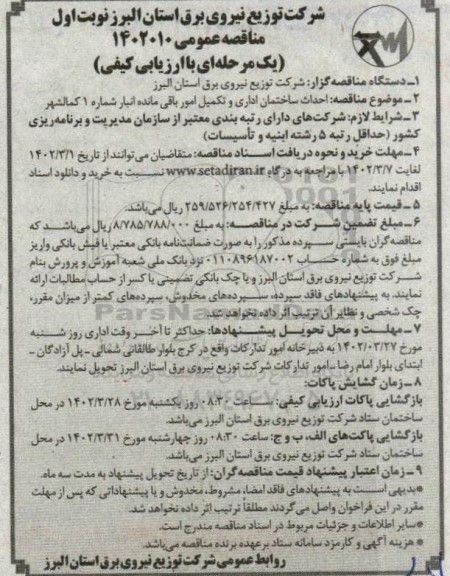 شرکت توزیع نیروی برق استان البرز نوبت اول
مناقصه عمومی ۱۴۰۲۰۱۰
(یک مرحله‌ای با ارزیابی کیفی)
۱ـ دستگاه مناقصه گزار: شرکت توزیع نیروی برق استان البرز
۲ـ موضوع مناقصه: احداث ساختمان اداری و تکمیل امور باقی مانده انبار شماره ۱ کمالشهر
۳ـ شرایط لازم: شرکت‌های دارای رتبه بندی معتبر از سازمان مدیریت و برنامه‌ریزی
کشور (حداقل رتبه ۵ رشته ابنیه و تأسیسات)
۴ـ مهلت خرید و نحوه دریافت اسناد مناقصه: متقاضیان می‌توانند از تاریخ ۱۴۰۲/۳/۱
لغایت ۱۴۰۲/۳/۷ با مراجعه به درگاه www.setadiran.ir نسبت به خرید و دانلود اسناد
اقدام نمایند.
۵ـ قیمت پایه مناقصه: به مبلغ ۲۵۹/۵۲۶/۲۵۴/۴۲۷ ریال می‌باشد.
۶ـ مبلغ تضمین شرکت در مناقصه: به مبلغ ۸/۷۸۵/۷۸۸/۰۰۰ ریال می‌باشد که
مناقصه گران بایستی سپرده مذکور را به صورت ضمانت‌نامه بانکی معتبر یا فیش بانکی واریز
مبلغ فوق به شماره حساب ۰۱۱۰۸۹۶۱۸۷۰۰۲ نزد بانک ملی شعبه آموزش و پرورش بنام
شرکت توزیع نیروی برق استان البرز و یا چک بانکی تضمینی یا کسر از حساب مطالبات ارائه
نمایند. به پیشنهادهای فاقد سپرده، سپرده‌های مخدوش، سپرده‌های کمتر از میزان مقرر،
چک شخصی و نظایر آن ترتیب اثر داده نخواهد شد.
۷ـ مهلت و محل تحویل پیشنهادها: حداکثر تا آخر وقت اداری روز شنبه
مورخ ۱۴۰۲/۰۳/۲۷ به دبیرخانه امور تدارکات واقع در کرج بلوار طالقانی شمالی ـ پل آزادگان ـ
ابتدای بلوار امام رضا ـ امور تدارکات شرکت توزیع نیروی برق استان البرز تحویل نمایند.
۸ـ زمان گشایش پاکات:
بازگشایی پاکات ارزیابی کیفی: ساعت ۰۸:۳۰ روز یکشنبه مورخ ۱۴۰۲/۳/۲۸ در محل
ساختمان ستاد شرکت توزیع نیروی برق استان البرز می‌باشد.
بازگشایی پاکت‌های الف، ب و ج: ساعت ۰۸:۳۰ روز چهارشنبه مورخ ۱۴۰۲/۳/۳۱ در محل
ساختمان ستاد شرکت توزیع نیروی برق استان البرز می‌باشد.
۹ـ زمان اعتبار پیشنهاد قیمت مناقصه گران: از تاریخ تحویل پیشنهاد به مدت سه ماه.
*بدیهی است به پیشنهادهای فاقد امضا، مشروط، مخدوش و یا پیشنهاداتی که پس از مهلت
مقرر در این فراخوان واصل می‌گردند مطلقاً ترتیب اثر داده نخواهد شد.
*سایر اطلاعات و جزئیات مربوط در اسناد مناقصه مندرج است.
*هزینه آگهی و کارمزد سامانه ستاد بر عهده برنده مناقصه می‌باشد.
روابط عمومی شرکت توزیع نیروی برق استان البرز